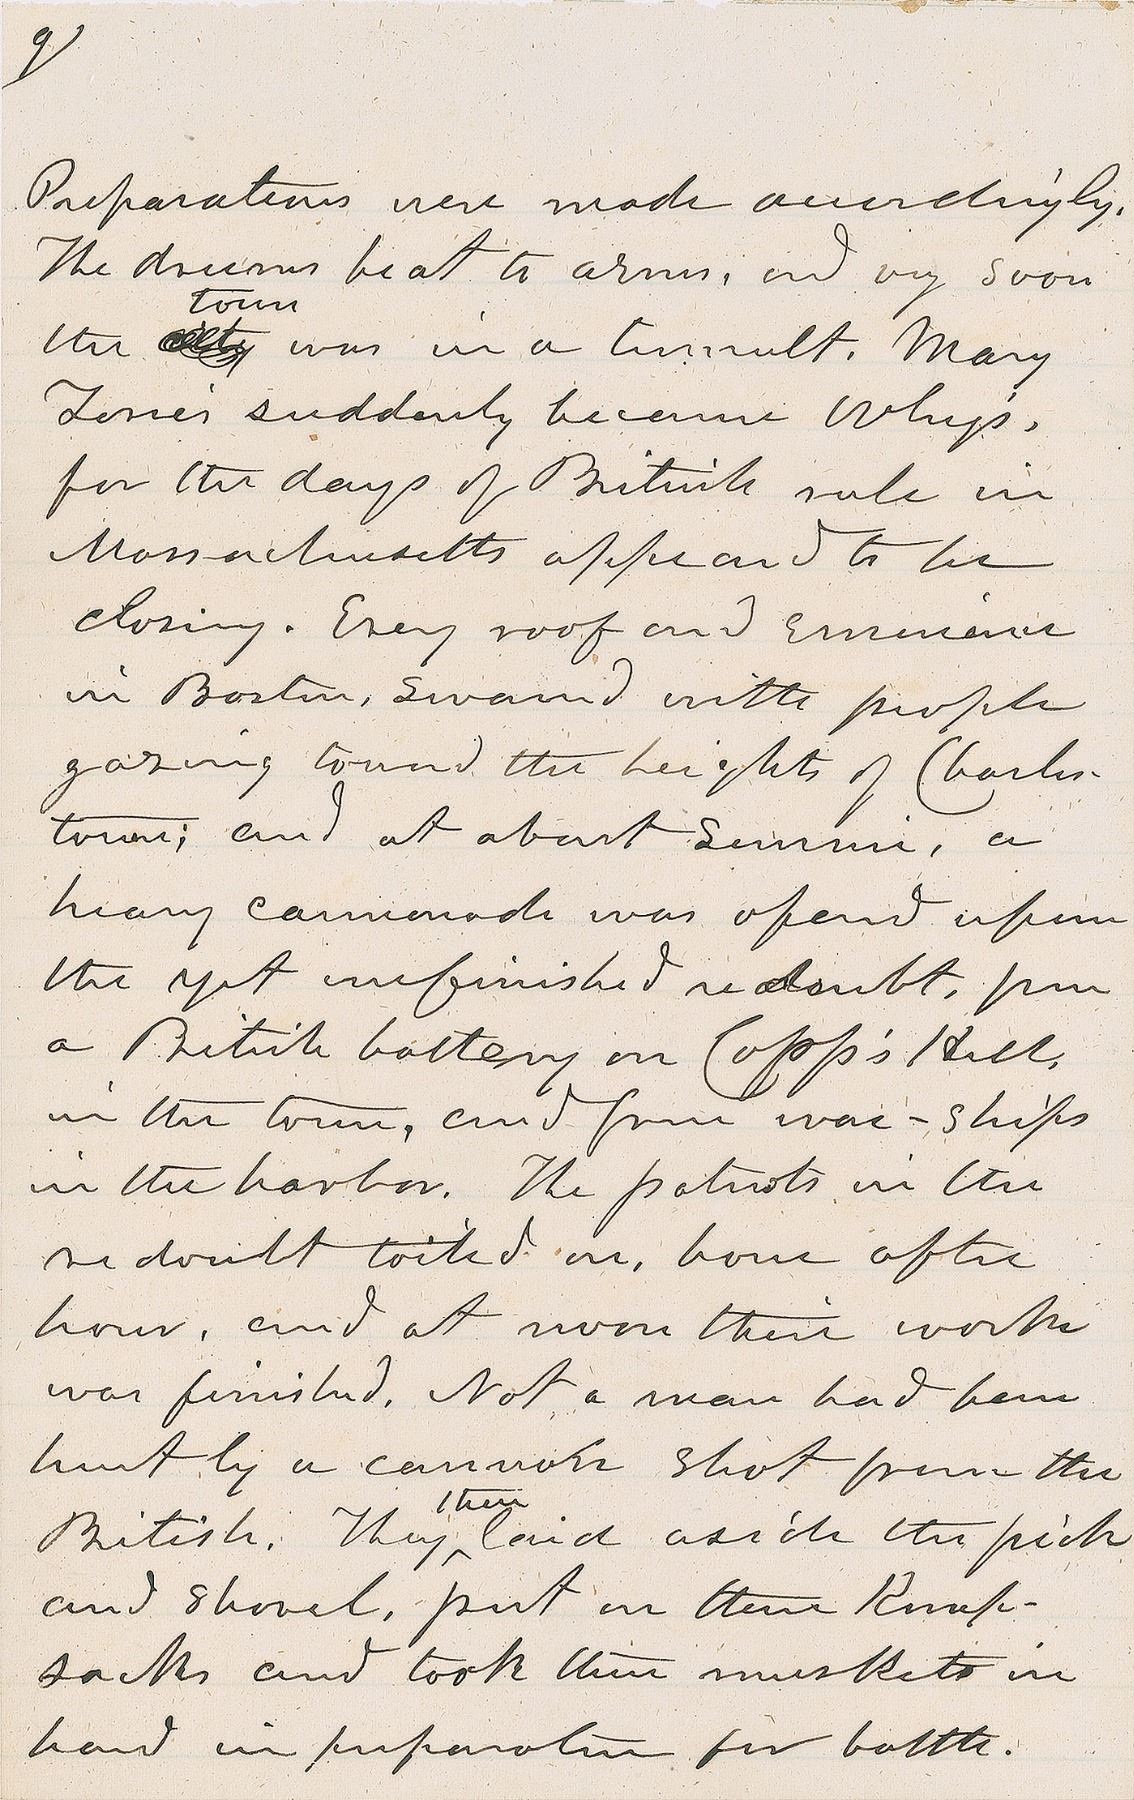 9
Preparations were made accordingly.
The drums beat to arms, and very soon
town
the city was in a tumult. Many
Tories suddenly became Whigs,
for the days of British rule in
Massachusetts appeared to be
closing. Every roof and eminence
in Boston, swarmed with people
gazing toward the heights of Charles-
town; and at about sunrise, a
heavy cannonade was opened upon
the yet unfinished redoubt, from
a British battery on Copp's Hill,
in the town, and from war-ships
in the harbor. The patriots in the
redoubt toiled on, hour after
hour, and at noon their work
was finished. Not a man had been
hurt by a cannon shot from the
then
British. They ^ laid aside the pick
and shovel, put on their Knap-
sacks and took their muskets in
hand in preparation for battle.